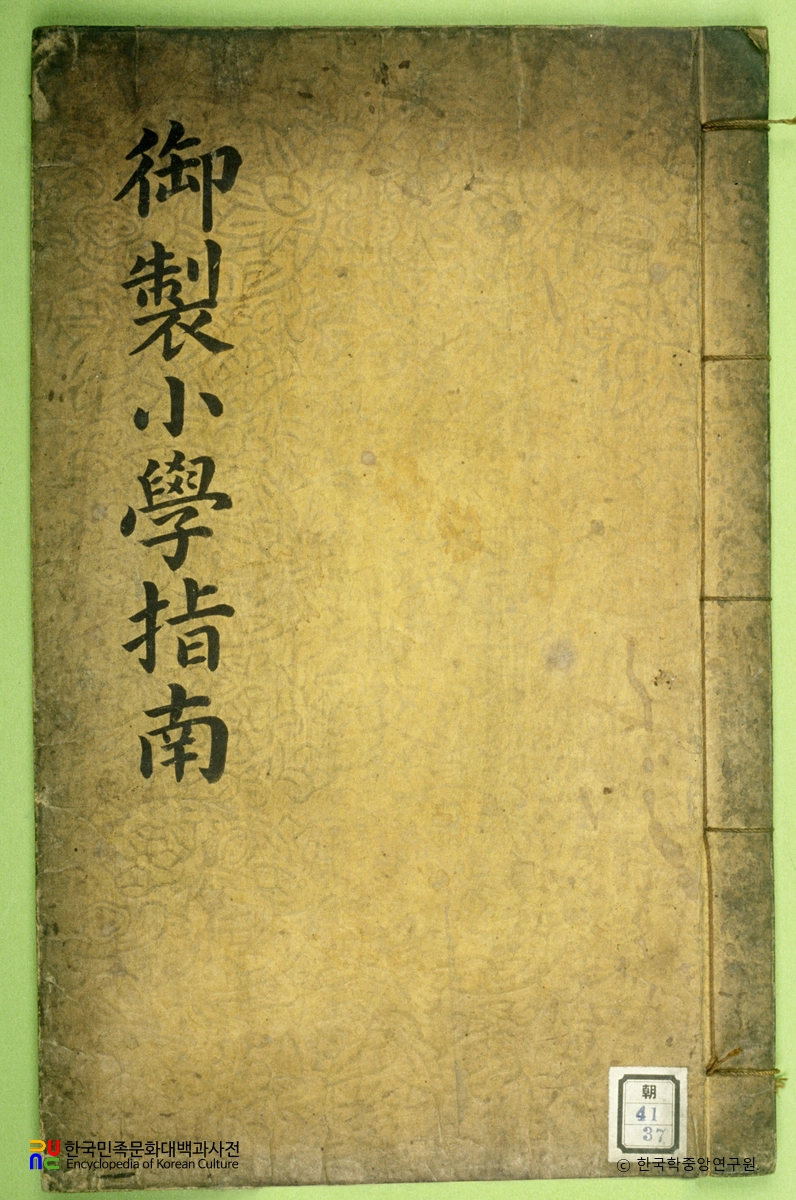 御製小學指南
朝
41
37
한국민족문화대백과사전
Encyclopedia of Korean Culture
© 한국학중앙연구원